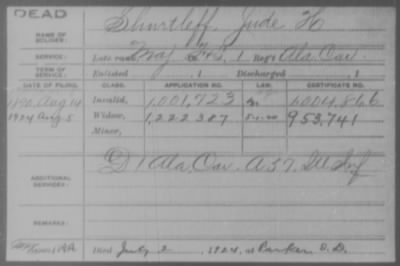 DEAD
NAME OF SOLDIER: Shurtleff, Jude H
SERVICE: Late rank, Maj F&S, 1 Reg't Ala. Cav
TERM OF SERVICE: Enlisted , 1 Discharged , 1
DATE OF FILING. CLASS. APPLICATION NO. LAW. CERTIFICATE NO.
1890, Aug 14 Invalid, 1,001,723
1924 Aug 5 Widow, 1,222,387 953,741
Minor,
ADDITIONAL SERVICES: D 1 Ala. Cav. A 57. Ill Inf
REMARKS:
Died July 2, 1924, at Parker S.D.